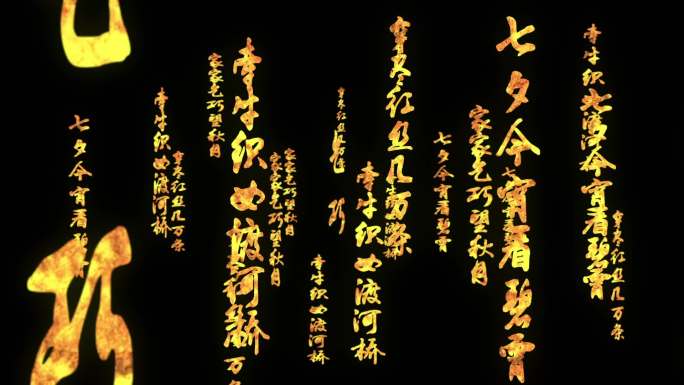 穿尽红丝几万条
牵牛织
今宵看碧霄
七夕今宵看碧霄
家家乞巧望秋月
七夕今宵看碧霄
穿尽红丝几万条
牵牛织女渡河桥
穿尽红丝几万条
巧
牵牛织女渡河桥
家家乞巧望秋月
家家乞巧望秋月
牵牛织女渡河桥
万条
家家乞巧望秋月
穿尽红丝几万条
牵牛织女渡河桥
七夕今宵看碧霄
巧